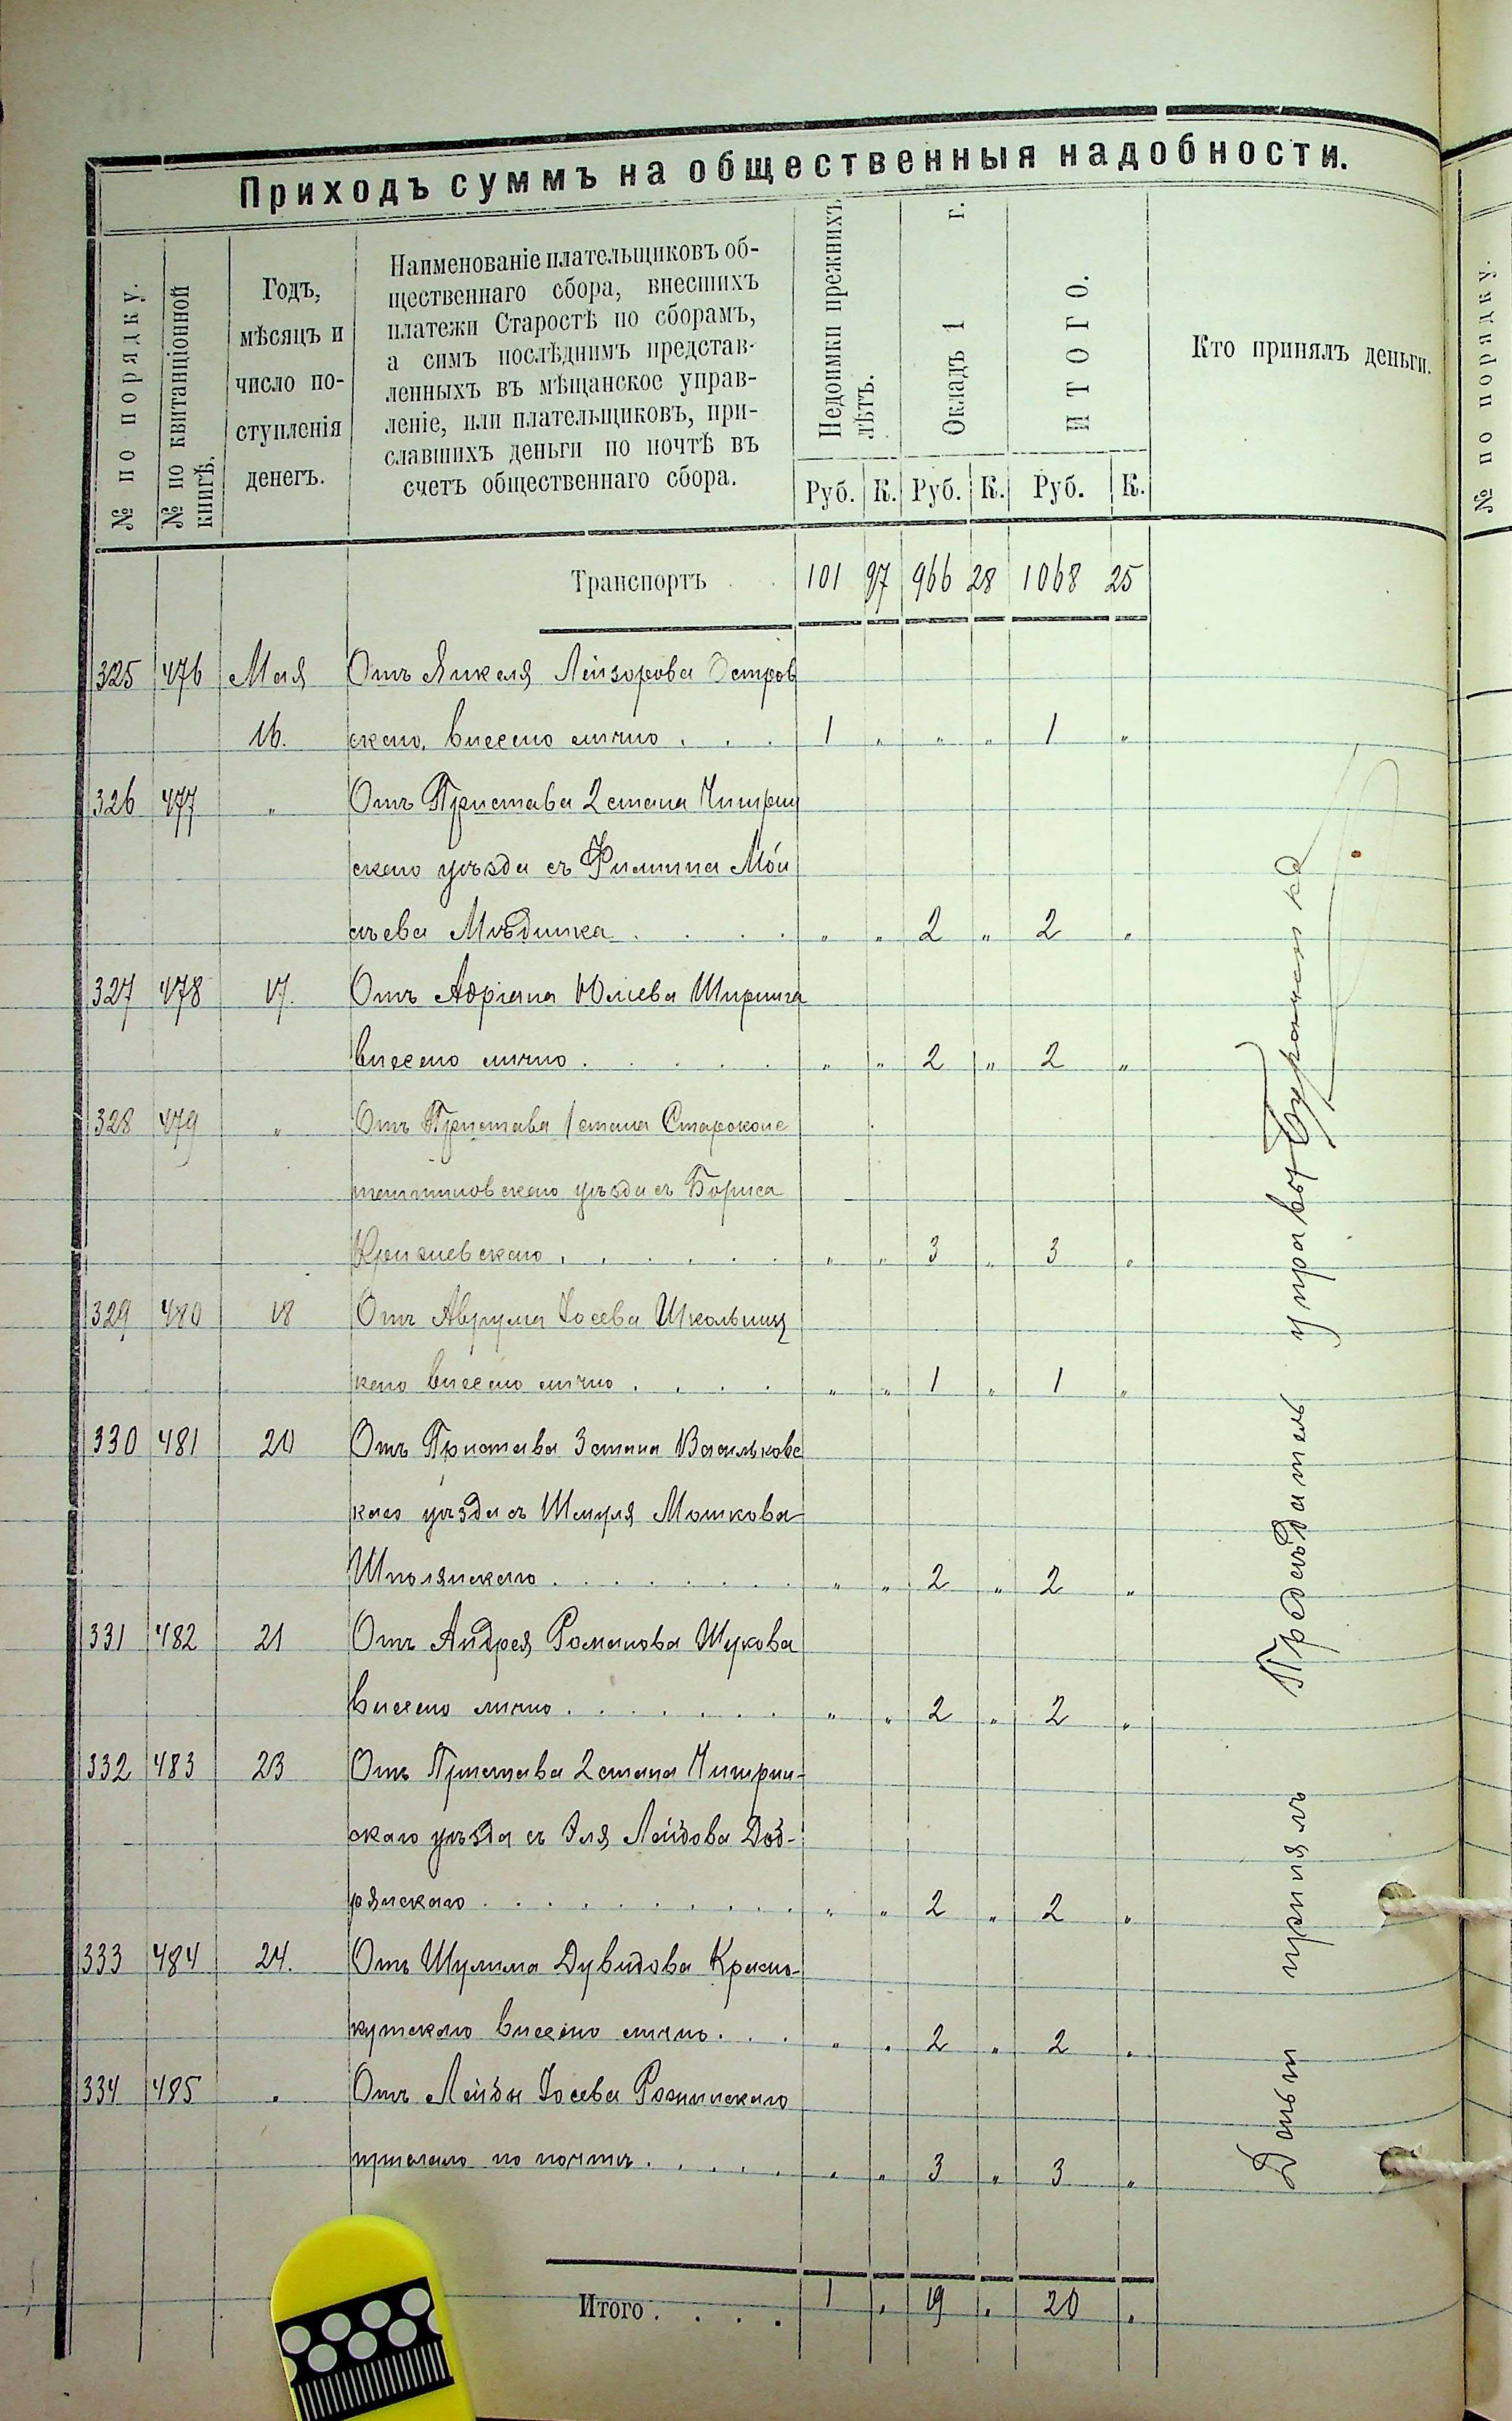 Приходъ суммъ на общественныя надобности.
№ по порядку.
№ по квитанціонной
книгѣ.
Годъ,
мѣсяцъ и
число по-
ступленія
денегъ.
Наименованіе плательщиковъ об-
щественнаго сбора, внесшихъ
платежи Старостѣ по сборамъ,
а симъ послѣднимъ представ-
ленныхъ въ мѣщанское управ-
леніе, или плательщиковъ, при-
славшихъ деньги по почтѣ въ
счетъ общественнаго сбора.
Недоимки прежнихъ
лѣтъ.
Окладъ 1 г.
ИТОГО.
Кто принялъ деньги.
Руб. К. Руб. К. Руб. К.
Транспортъ 101 97 966 28 1068 25
325 476 Мая Отъ Янкеля Лейзорова Остров
16. скаго, внесено лично . . . 1 „ „ „ 1 „
326 477 „ Отъ Пристава 2 стана Чигрин
скаго уѣзда съ Филиппа Мои
сѣева . . . . „ „ 2 „ 2 „
327 478 17. Отъ Адріана Юлiева
внесено лично . . . . . „ „ 2 „ 2 „
328 479 „ Отъ Пристава 1 стана Староконс
тантиновскаго уѣзда съ Бориса
. . . . . . „ „ 3 „ 3 „
329 480 18 Отъ Аврума Іосева Школьниц
каго внесено лично . . . . „ „ 1 „ 1 „
330 481 20 Отъ Пристава 3 стана Васильковс
каго уѣзда съ Шмуля Мошкова
Шполянскаго . . . . . . . „ „ 2 „ 2 „
331 482 21 Отъ Андрея Романова Шукова
внесено лично . . . . . . . „ „ 2 „ 2 „
332 483 23 Отъ Пристава 2 стана Чигрин-
скаго уѣзда съ Эля Доб-
рянскаго . . . . . . . . . „ „ 2 „ 2 „
333 484 24. Отъ Шулима Дувидова Красно-
кутскаго внесено лично . . . „ „ 2 „ 2 „
334 485 „ Отъ Лейбы Іосева
прислано по почтѣ . . . . . „ „ 3 „ 3 „
Итого . . . . 1 „ 19 „ 20 „
Деньги принялъ Предсѣдатель управы
№ по порядку.